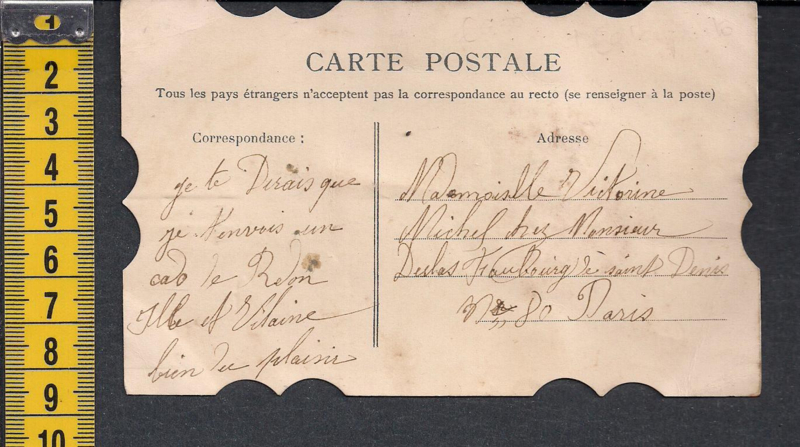 CARTE POSTALE
Tous les pays étrangers n'acceptent pas la correspondance au recto (se renseigner à la poste)
Correspondance :
je te Dirais que
je t'envois un
cad de Redon
Ille et Vilaine
bien du plaisir
Adresse
Mademoiselle Victorine
Michel chez Monsieur
Deslas Faubourg de saint Denis
80 Paris
1
2
3
4
5
6
7
8
9
10